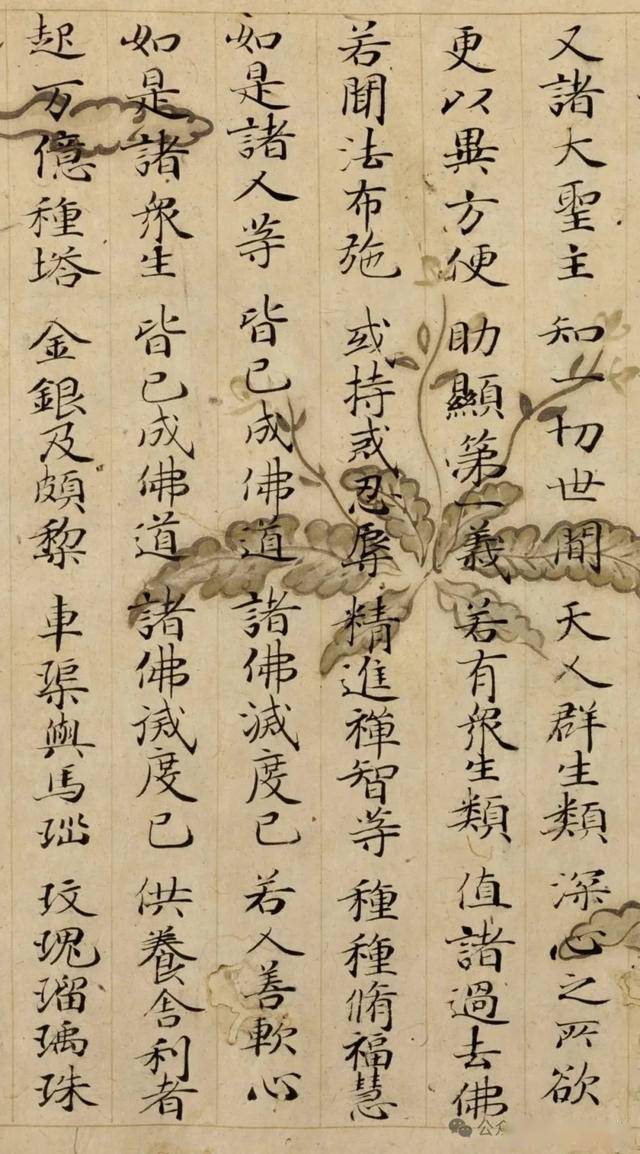 又諸大聖主 知一切世間 天人群生類 深心之所欲
更以異方便 助顯第一義 若有衆生類 值諸過去佛
若聞法布施 或持或忍辱 精進禪智等 種種脩福慧
如是諸人等 皆已成佛道 諸佛滅度已 若人善軟心
如是諸衆生 皆已成佛道 諸佛滅度已 供養舍利者
起万億種塔 金銀及頗黎 車璖與馬瑙 玟瑰瑠璃珠
公众